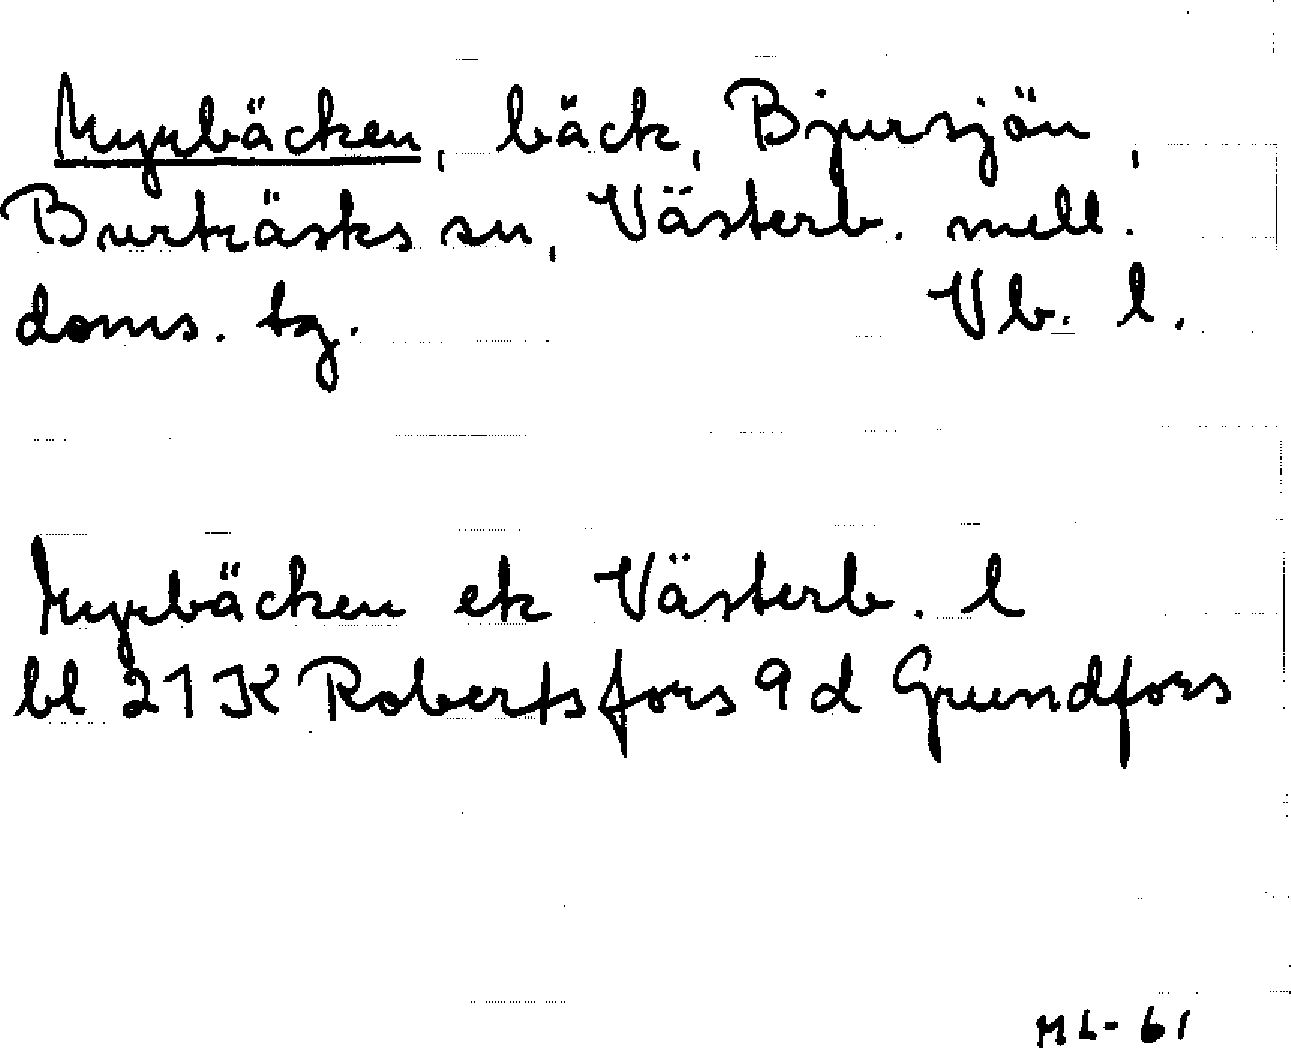 Myrbäcken, bäck, Bjursjön,
Burträsks sn, Västerb. mell.
doms. tg. Vb. l.
Myrbäcken ek Västerb. l
bl 21 K Robertsfors 9 d Grundfors
ML-61